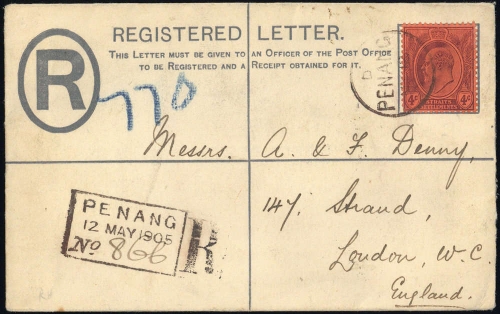 REGISTERED LETTER.
THIS LETTER MUST BE GIVEN TO AN OFFICER OF THE POST OFFICE
TO BE REGISTERED AND A RECEIPT OBTAINED FOR IT.
R
770
PENANG
4c STRAITS SETTLEMENTS 4c
Messrs. A. & F. Denny,
147, Strand,
London, W.C.
England.
PENANG
12 MAY 1905
No 866
R